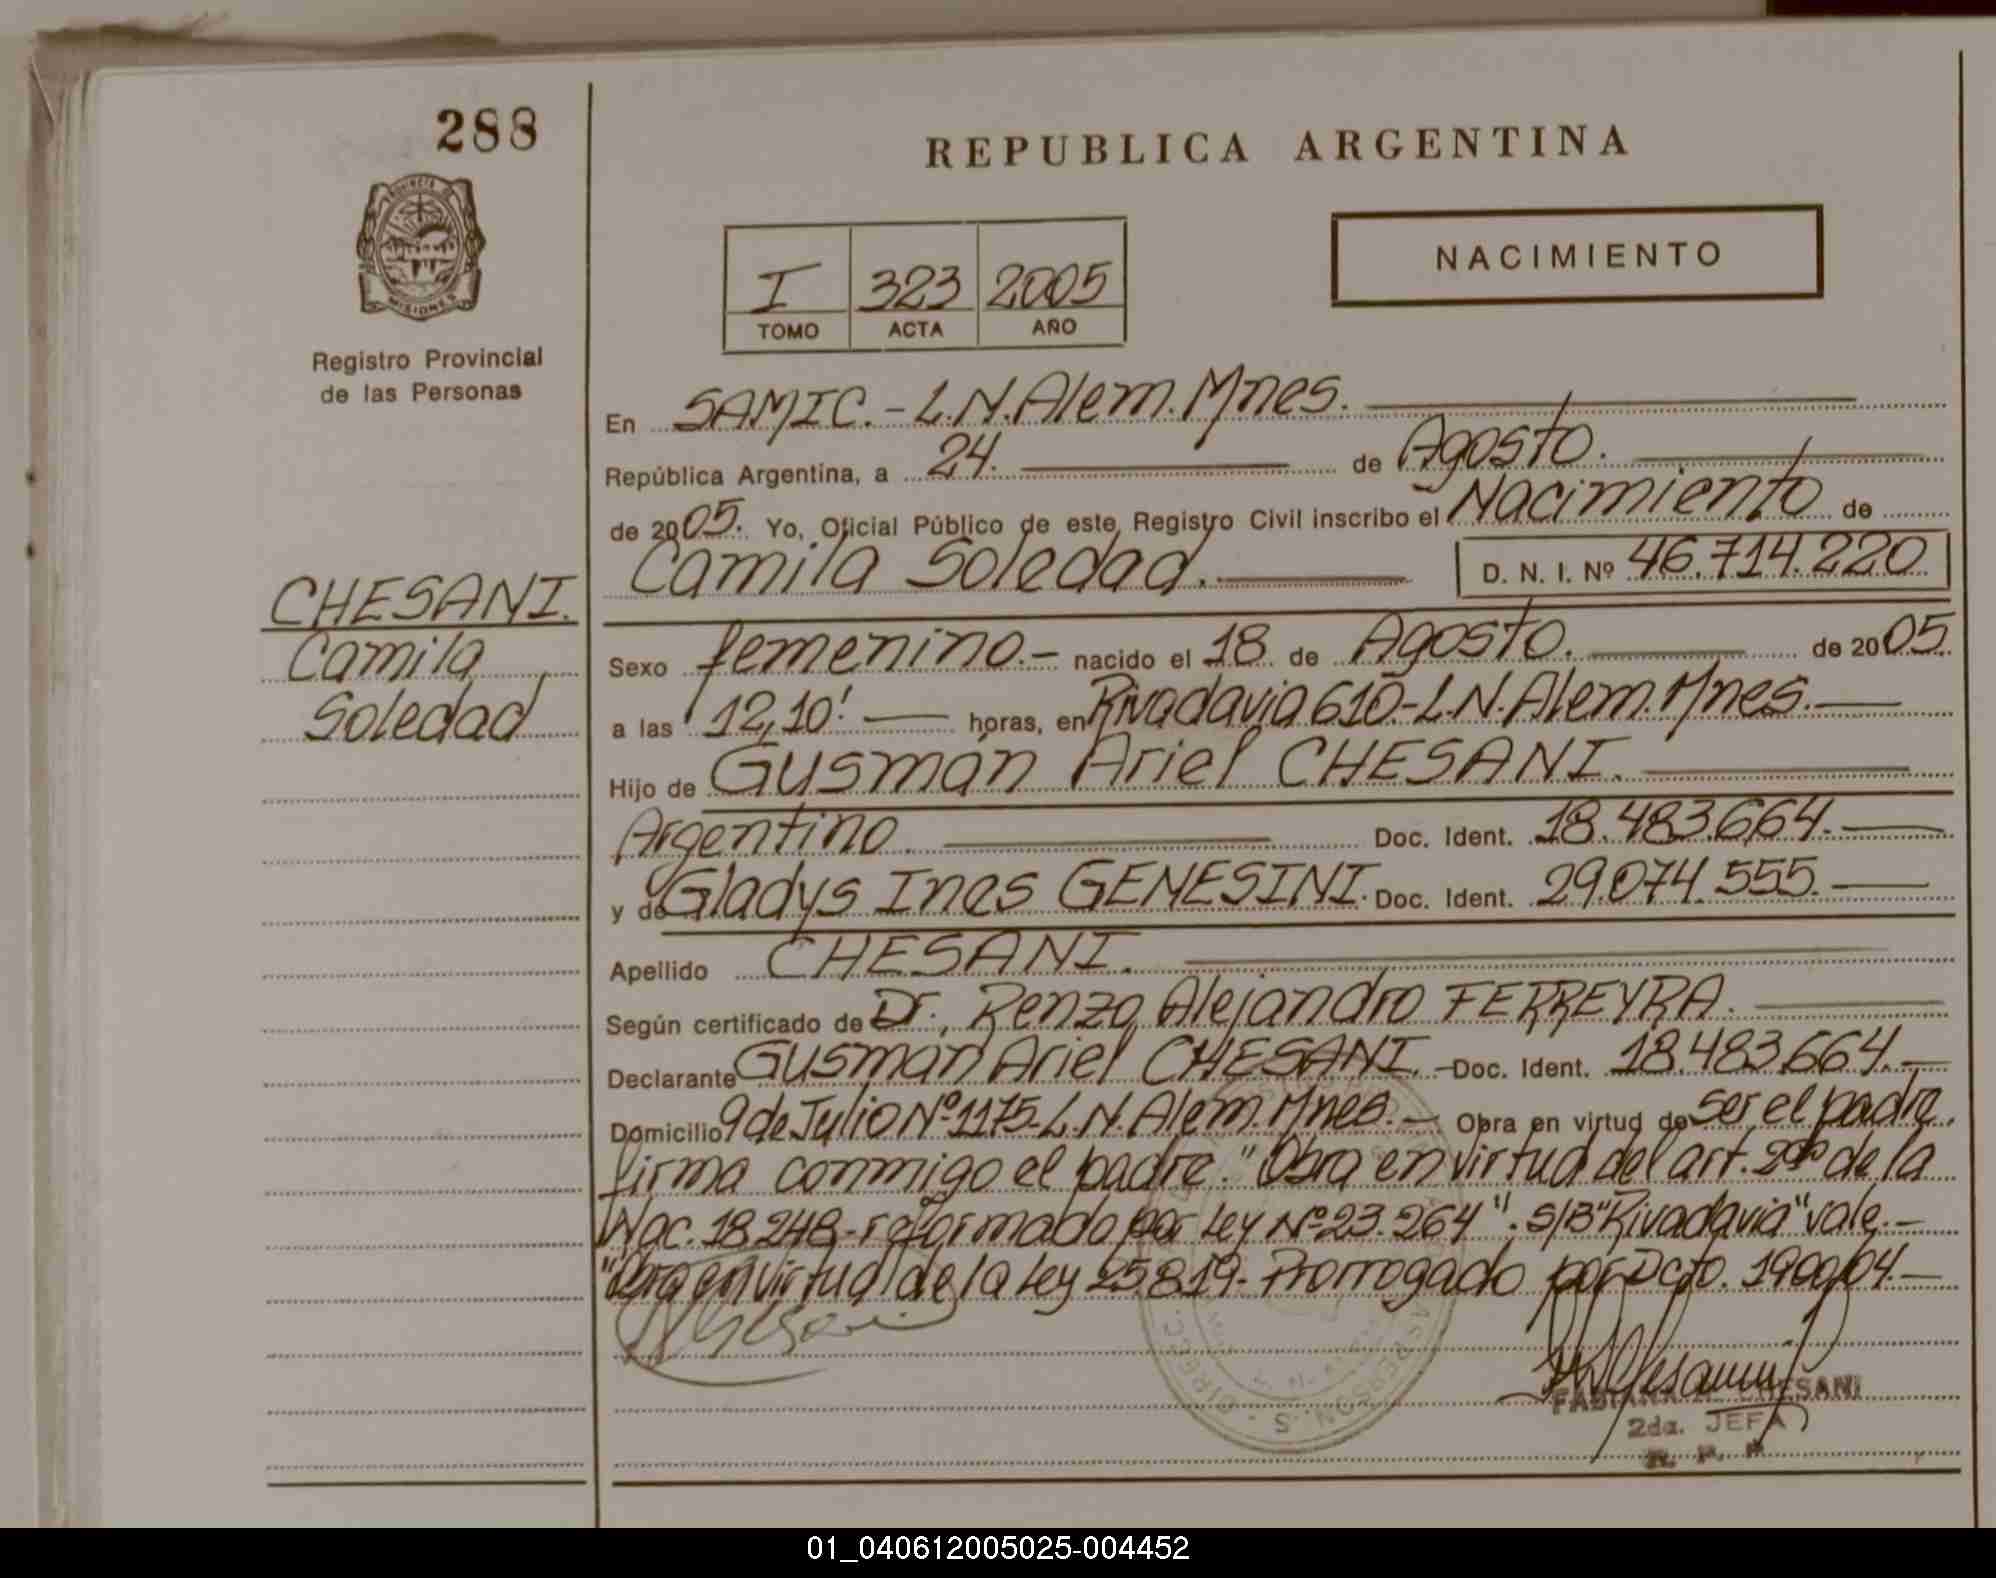 288
REPUBLICA ARGENTINA
PROVINCIA DE
MISIONES
Registro Provincial
de las Personas
NACIMIENTO
I 323 2005
TOMO ACTA AÑO
En SAMIC.- L.N.Alem.Mnes.
República Argentina, a 24. de Agosto.
de 2005. Yo, Oficial Público de este Registro Civil inscribo el Nacimiento de
Camila Soledad. D. N. I. Nº 46.714.220
CHESANI.
Camila
Soledad
Sexo femenino.- nacido el 18 de Agosto. de 2005.
a las 12,10' horas, en Rivadavia 610.-L.N.Alem.Mnes.
Hijo de Gusmán Ariel CHESANI.
Argentino. Doc. Ident. 18.483.664.
y de Gladys Ines GENESINI. Doc. Ident. 29.074.555.
Apellido CHESANI.
Según certificado de Dr. Renzo Alejandro FERREYRA.
Declarante Gusmán Ariel CHESANI.- Doc. Ident. 18.483.664.-
Domicilio 9 de Julio Nº 1175-L.N.Alem.Mnes.- Obra en virtud de ser el padre,
firma conmigo el padre. "Obra en virtud del art. de la
18.248-reformado por Ley Nº 23.264". S/B "Rivadavia" vale.-
"Obra en virtud de la Ley 25.819.- Prorrogado por Dcto. 1900/04.-
CHESANI
2da. JEFA
R. P. P.
01_040612005025-004452